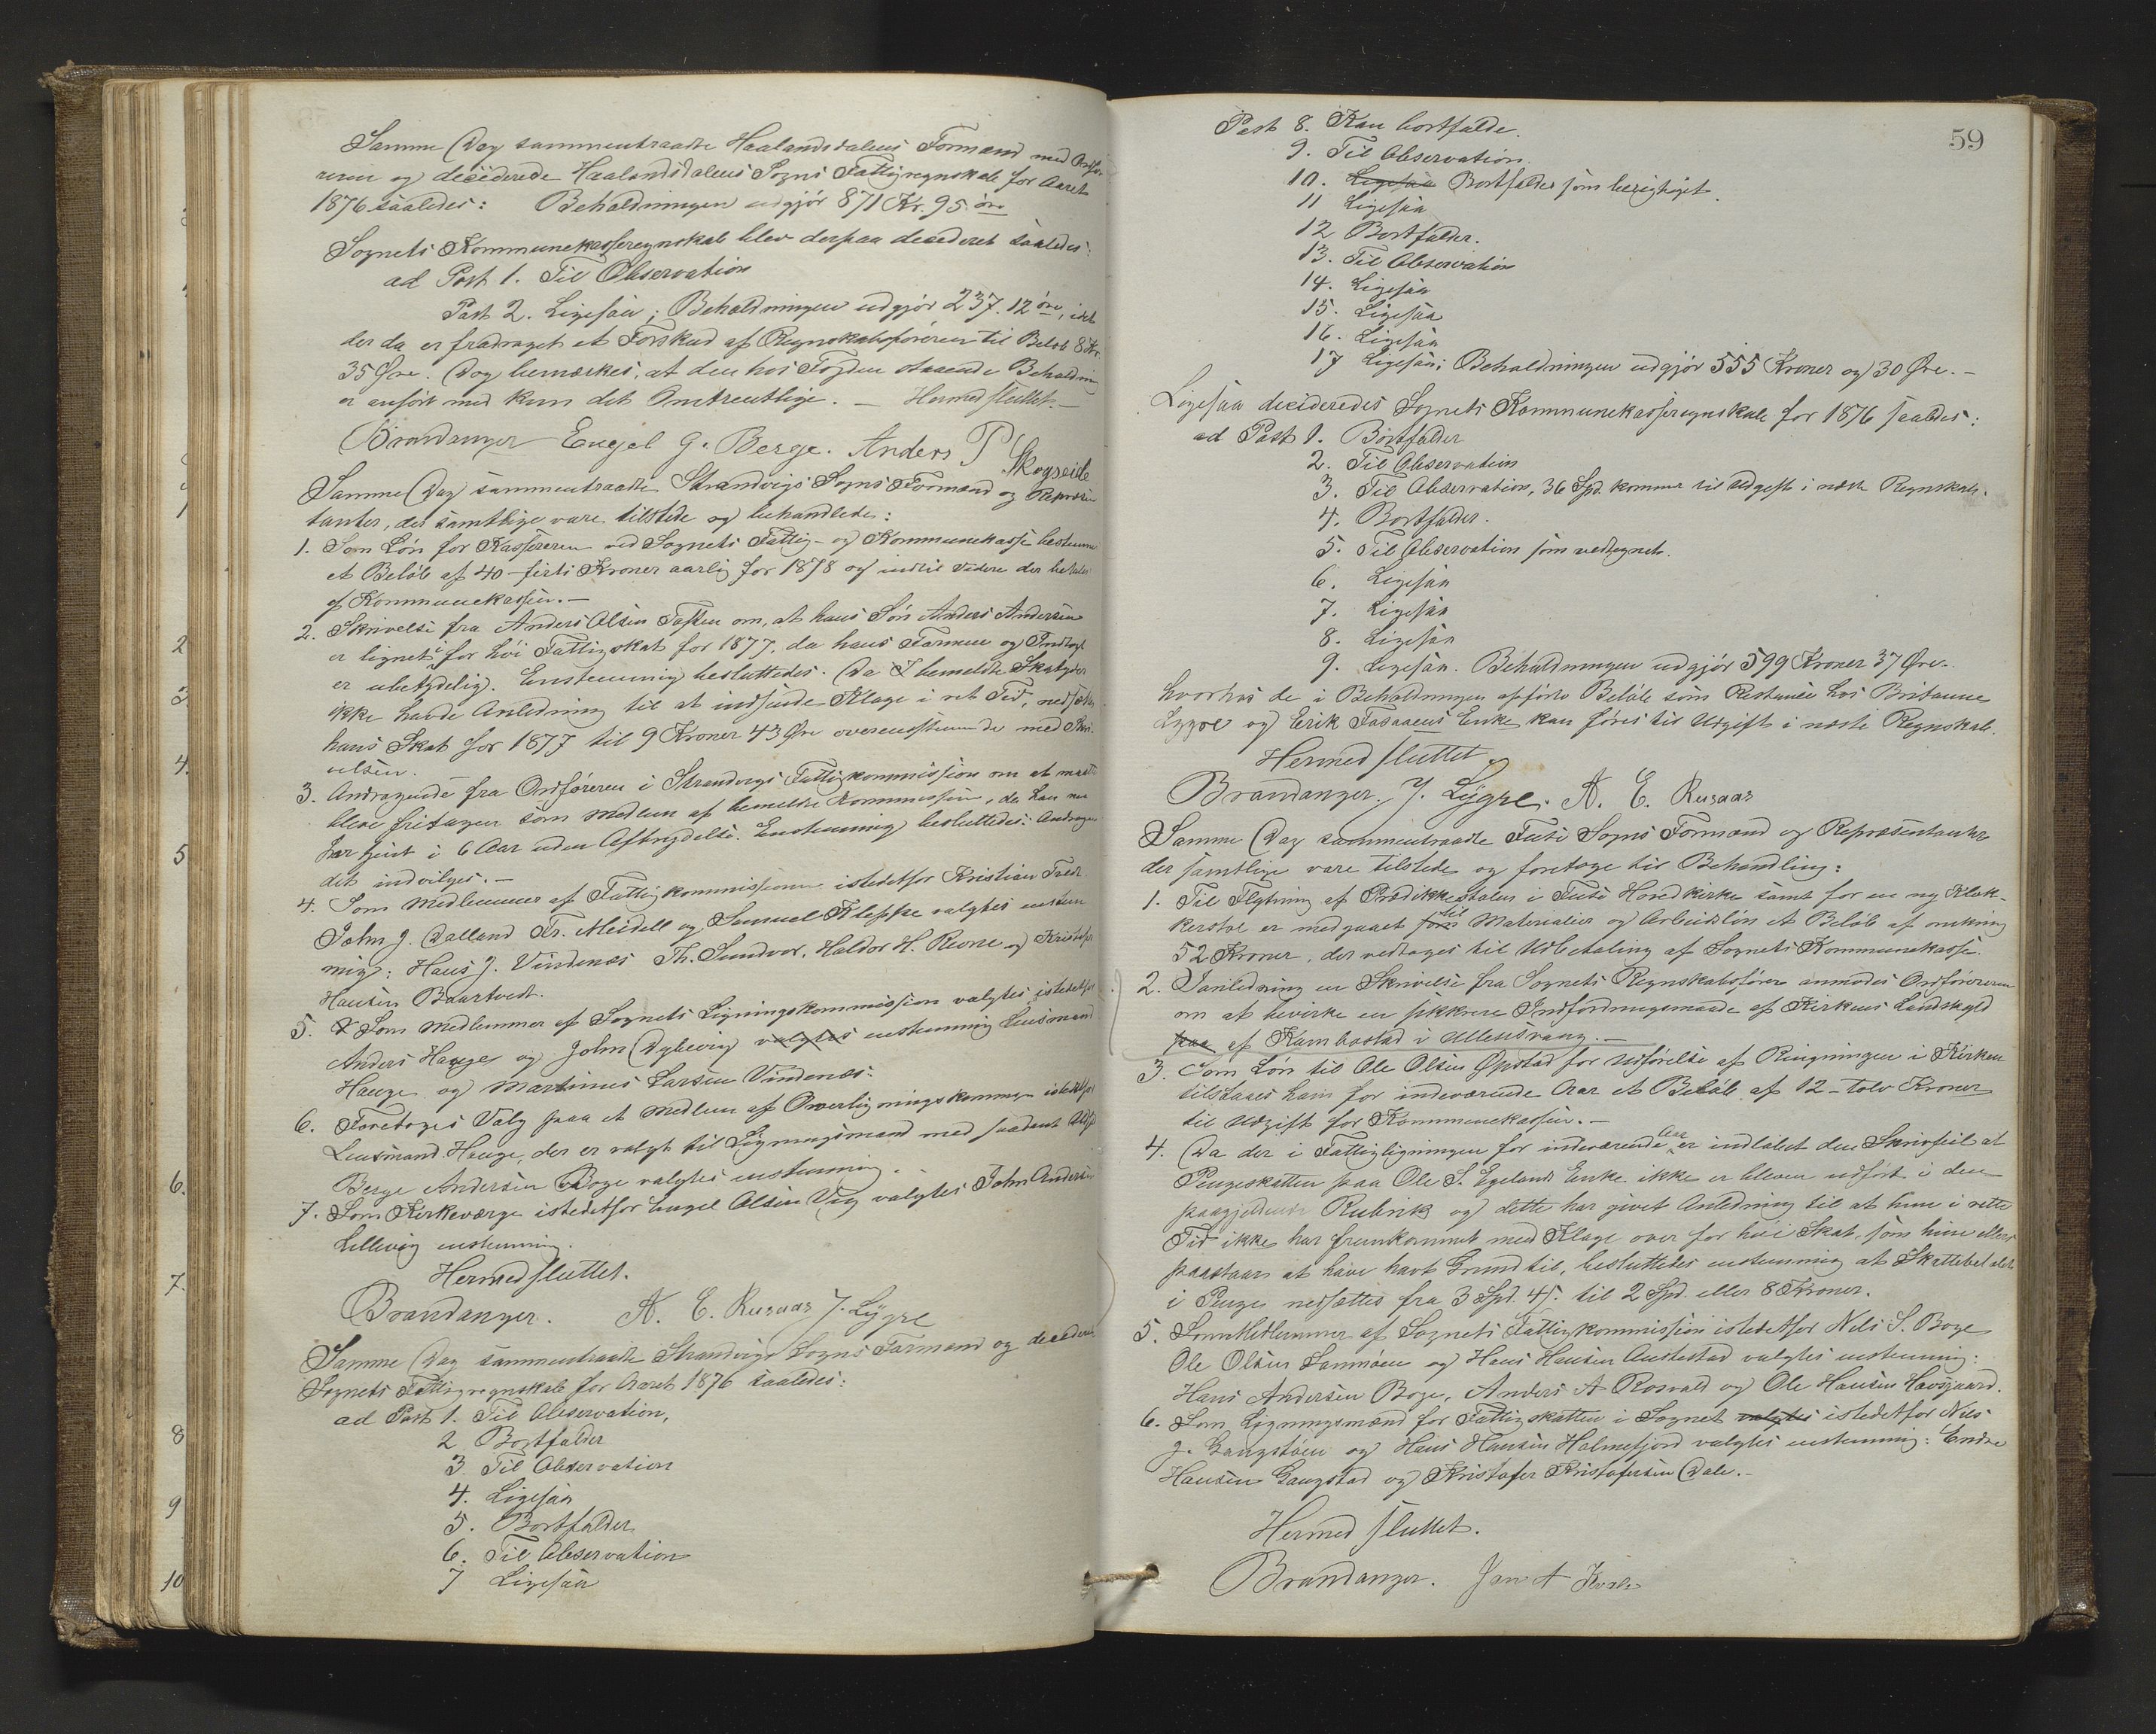 Samme Dag sammentraadte Haalandsdalens Formænd med Ordfø-
reren og deciderede Haalandsdalens Sogns Fattigregnskab for Aaret
1876 saaledes: Beholdningen udgjör 871 Kr. 95 öre
Sognets Kommunekasseregnskab blev derpaa decideret saaledes:
ad Post 1. Til Observation
Post 2. Ligesaa; Beholdningen udgjör 237. 12 öre, idet
der da er fradraget et Forskud af Regnskabsföreren til Belöb 8 Kr.
35 Øre. Dog bemærkes, at den hos Fogden staaende Beholdning
er anfört med kun det Omtrentlige. — Hermed sluttet. —
Brandanger Engel G. Berge. Anders P Skogseide
Samme Dag sammentraadte Strandvigs Sogns Formænd og Repræsen
tanter, der samtlige vare tilstede og behandlede:
1. Som Lön for Kassereren ved Sognets Fattig- og Kommunekasse bestemmes
et Belöb af 40 – firti Kroner aarlig for 1878 og indtil videre der betales
af Kommunekassen. —
2. Skrivelse fra Anders Olsen om, at hans Sön Anders Andersen
er lignet i for höi Fattigskat for 1877, da hans Formue og Indtægt
er ubetydelig. Enstemmig besluttedes: Da bemeldte Skatyder
ikke havde Anledning til at indsende Klage i ret Tid, nedsættes
hans Skat for 1877 til 9 Kroner 43 Øre overensstemmende med Skri-
velsen.
3. Andragende fra Ordföreren i Strandvigs Fattigkommission om at maatte
blive fritagen som Medlem af bemeldte Kommission, da han nu
har tjent i 6 Aar uden Afbrydelse. Enstemmig besluttedes: Andragen
det indvilges. —
4. Som Medlemmer af Fattigkommissionen istedetfor Kristian
John J. Dalland Fr. Meidell og Samuel Kleppe valgtes enstem
mig: Hans J. Vindenæs Th. Sundvor, Haldor H. Revne og Kristofer
Hansen Baartvedt.
5. Som Medlemmer af Sognets Ligningskommission valgtes istedetfor
Anders Hauge og John Dybvig valgtes enstemmig Lensmand
Hauge og Martinus Larsen Vindenæs.
6. Foretoges Valg paa et Medlem af Overligningskommn istedetfor
Lensmand Hauge, der er valgt til Ligningsmand med saadant Udfald
Berge Andersen Boge valgtes enstemmig.
7. Som Kirkeværge istedetfor Engel Olsen Vig valgtes John Andersen
Lillevig enstemmig.
Hermed sluttet.
Brandanger. A. E. Rusaas J. Lygre
Samme Dag sammentraadte Strandvigs Sogns Formænd og deciderede
Sognets Fattigregnskab for Aaret 1876 saaledes:
ad Post 1. Til Observation,
2 Bortfalder
3. Til Observation
4. Ligesaa
5. Bortfalder
6. Til Observation
7 Ligesaa
2
3.
4.
5
6.
7.
8
9
10
59
Post 8. Kan bortfalde.
9. Til Observation.
10. Ligesaa Bortfalder som berigtiget.
11 Ligesaa
12 Bortfalder.
13. Til Observation
14. Ligesaa
15. Ligesaa
16. Ligesaa
17 Ligesaa; Beholdningen udgjör 555 Kroner og 30 Øre. —
Ligesaa decideredes Sognets Kommunekasseregnskab for 1876 saaledes:
ad Post 1. Bortfalder
2. Til Observation
3. Til Observation, 36 Spd. kommer til Udgift i næste Regnskab.
4. Bortfalder.
5. Til Observation som vedtegnet.
6. Ligesaa
7. Ligesaa
8. Ligesaa
9. Ligesaa. Beholdningen udgjör 599 Kroner 37 Øre.
hvorhos de i Beholdningen opförte Beløb som Restance hos Britanne
Lygre og Erik Enke kan föres til Udgift i næste Regnskab.
Hermed sluttet.
Brandanger. J. Lygre. A. E. Rusaas
Samme Dag sammentraadte Fuse Sogns Formænd og Repræsentanter
der samtlige vare tilstede og foretoge til Behandling:
1. Til Flytning af Prædikestolen i Fuse Hovedkirke samt for en ny Klok-
kerstol er medgaaet for til Materialier og Arbeidslön et Belöb af omkring
52 Kroner, der vedtages til Udbetaling af Sognets Kommunekasse.
2. I anledning en Skrivelse fra Sognets Regnskabsförer anmodes Ordföreren
om at bevirke en sikkrere Indfordringsmaade af Kirkens Landskyld
paa af Kambestad i Ullensvang. —
3. Som Lön til Ole Olsen Opstad for Udförelse af Ringningen i Kirken
tilstaaes ham for indeværende Aar et Belöb af 12 – tolv Kroner
til Udgift for Kommunekassen. —
4. Da der i Fattigligningen for indeværende Aar er indløbet den Skrivfeil at
Pengeskatten paa Ole S. Egelands Enke ikke er bleven udfört i den
paagjeldende Rubrik og dette har givet Anledning til at hun i rette
Tid ikke har fremkommet med Klage over for höi Skat, som hun ellers
paastaar at have havt Grund til, besluttedes enstemmig at Skattebelöbet
i Penge nedsættes fra 3 Spd. 4 ß. til 2 Spd. eller 8 Kroner.
5. Som Medlemmer af Sognets Fattigkommission istedetfor Nils S. Boge
Ole Olsen Samnöen og Hans Hansen Austestad valgtes enstemmig:
Hans Andersen Boge, Anders A Rosvald og Ole Hansen Havsgaard.
6. Som Ligningsmænd for Fattigskatten i Sognet valgtes istedetfor Nils
J. Gangstöen og Hans Hansen Holmefjord valgtes enstemmig: Endre
Hansen Gangstad og Kristofer Kristofersen Dale. —
Hermed sluttet.
Brandanger. Jon A Kvale